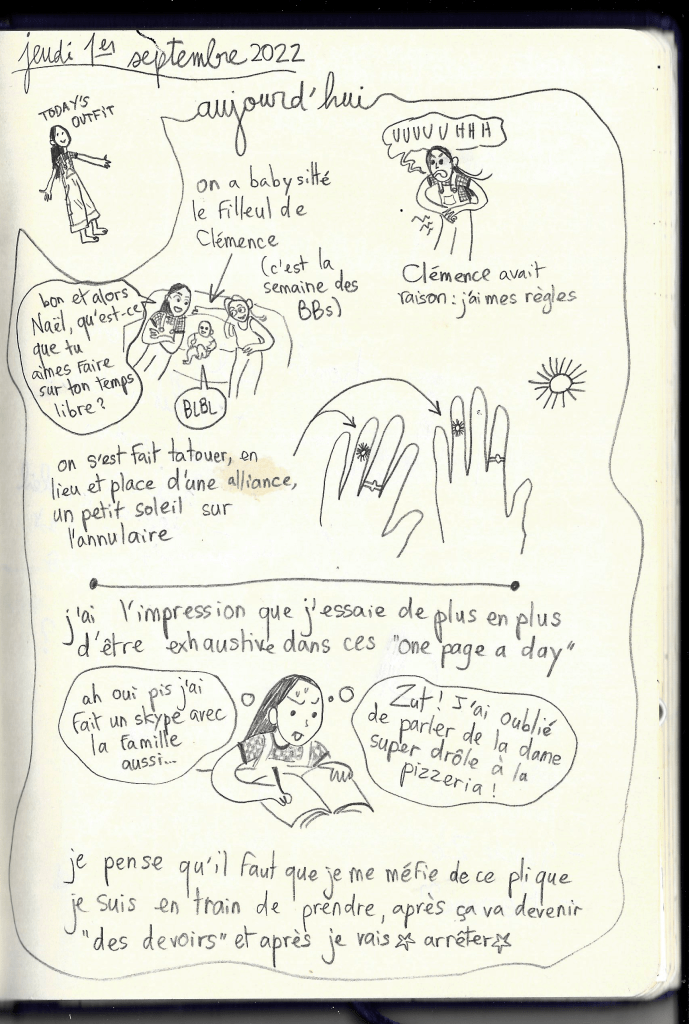 jeudi 1er septembre 2022
TODAY'S
OUTFIT
aujourd'hui
on a babysitté
le filleul de
Clémence
(c'est la
semaine des
BBs)
UUUUUHHH
Clémence avait
raison : j'ai mes règles
bon et alors
Naël, qu'est-ce
que tu
aimes faire
sur ton temps
libre ?
BLBL
on s'est fait tatouer, en
lieu et place d'une alliance,
un petit soleil sur
l'annulaire
j'ai l'impression que j'essaie de plus en plus
d'être exhaustive dans ces "one page a day"
ah oui pis j'ai
fait un skype avec
la famille
aussi...
Zut ! J'ai oublié
de parler de la dame
super drôle à la
pizzeria !
je pense qu'il faut que je me méfie de ce pli que
je suis en train de prendre, après ça va devenir
"des devoirs" et après je vais ☆ arrêter ☆